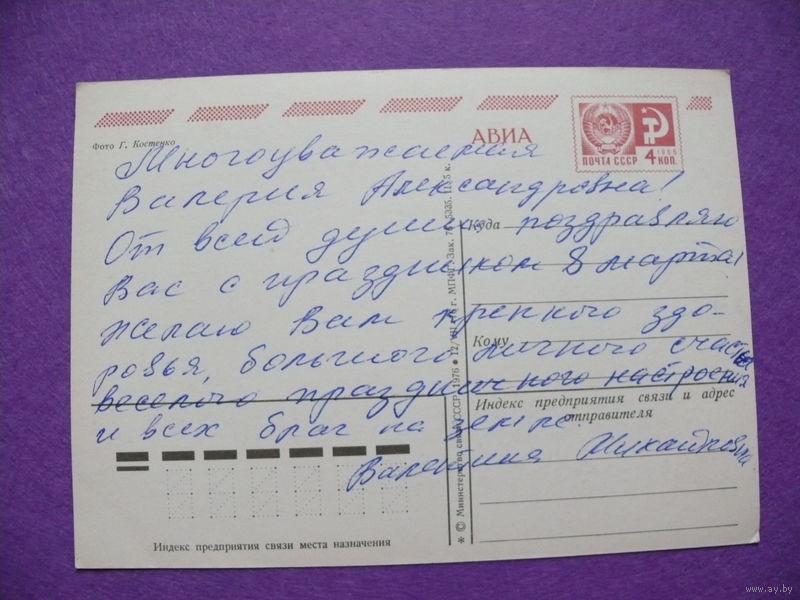 Фото Г. Костенко
АВИА
ПОЧТА СССР 4 КОП.
1966
Многоуважаемая
Валерия Александровна!
От всей души поздравляю
Вас с праздником 8 марта!
Желаю Вам крепкого здо-
ровья, большого личного счастья
веселого праздничного настроения
и всех благ на земле.
Валентина Михайловна
Куда
Кому
Индекс предприятия связи и адрес
отправителя
Индекс предприятия связи места назначения
© Министерство связи СССР, 1976
www.ay.by